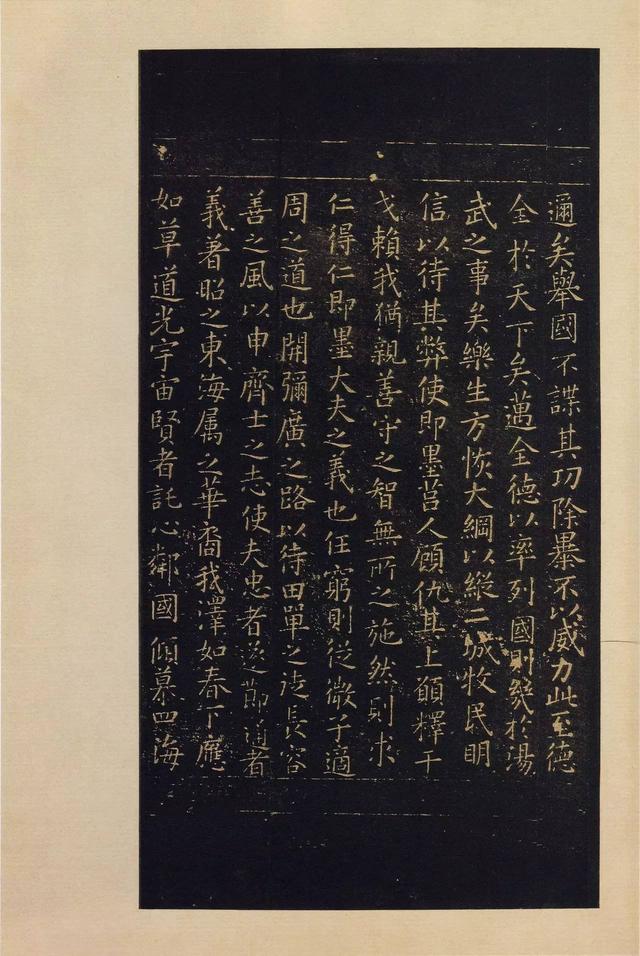 邇矣舉國不謀其功除暴不以威力此至德
全於天下矣邁全德以率列國則幾於湯
武之事矣樂生方恢大綱以縱二城牧民明
信以待其弊使即墨莒人顧仇其上願釋干
戈賴我猶親善守之智無所之施然則求
仁得仁即墨大夫之義也任窮則從微子適
周之道也開彌廣之路以待田單之徒長容
善之風以申齊士之志使夫忠者遂節通者
義著昭之東海属之華裔我澤如春下應
如草道光宇宙賢者託心鄰國傾慕四海